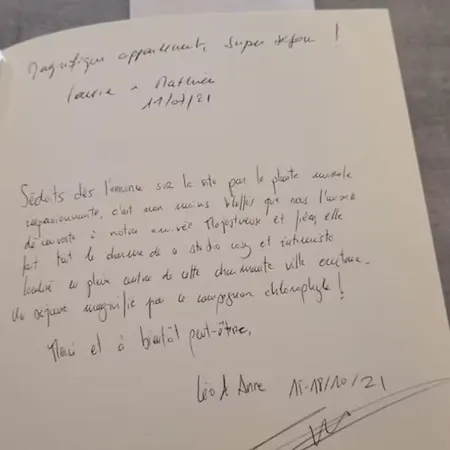 Magnifique appartement, super séjour !
Laurie & Mathieu
11/07/21
Séduits dès l'annonce sur le site par la plante murale
impressionnante, c'est non moins bluffés que nous l'avons
découverte à notre arrivée. Majestueuse et fière, elle
fait tout le charme de ce studio cosy et intimiste
localisé en plein centre de cette charmante ville
Un séjour magnifié par le compagnon chlorophyle !
Merci et à bientôt peut-être,
Léo & Anne 15-18/10/21